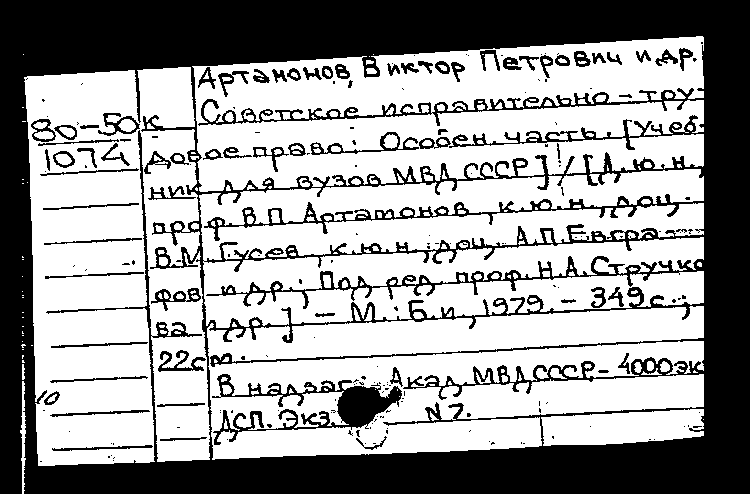 Артамонов, Виктор Петрович и др.
Советское исправительно-тру-
80-50к
1074
довое право: Особен. часть. [Учеб-
ник для вузов МВД СССР] / [Д.ю.н.,
проф. В.П. Артамонов, к.ю.н., доц.
В.М. Гусев, к.ю.н., доц. А.П. Евгра-
фов и др.; Под ред. проф. Н.А. Стручко
ва и др.] - М.: Б.и., 1979. - 349 с.;
22 см.
В надзаг.: Акад. МВД СССР. - 4000 эк
10
ДСП. Экз. N 7.